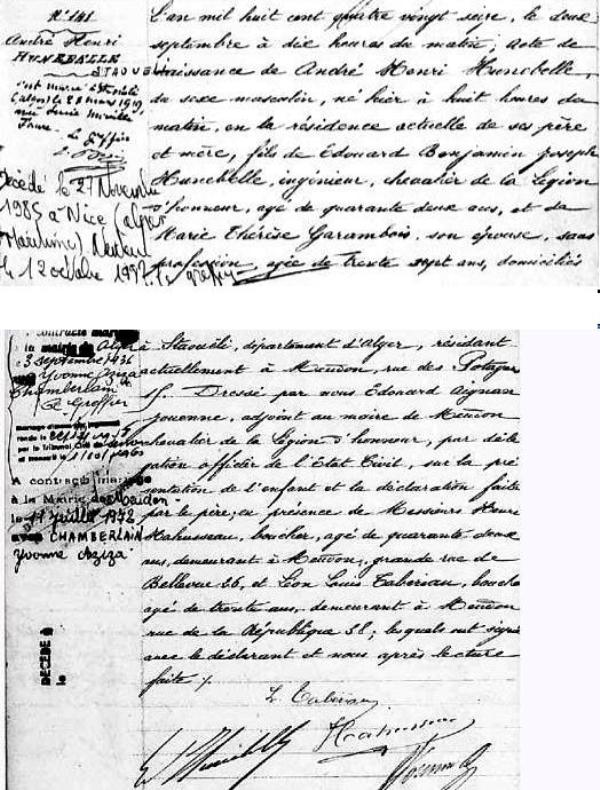 N° 141
André Henri
HUNEBELLE
STAOUELI
s'est marié à Staouéli
(Alger) le 28 mars 1919
Le Greffier
Décédé le 27 Novembre
1985 à Nice (Alpes
Maritimes)
L'an mil huit cent quatre vingt seize, le deux
septembre à dix heures du matin; acte de
naissance de André Henri Hunebelle,
du sexe masculin, né hier à huit heures du
matin, en la résidence actuelle de ses père
et mère, fils de Edouard Benjamin Joseph
Hunebelle, ingénieur, chevalier de la Légion
d'honneur, agé de quarante deux ans, et de
Marie Thérèse Garambois, son épouse, sans
profession, agée de trente sept ans, domiciliés
à la mairie de Alger
3 septembre 1936
Yvonne Aziza
Chamberlain
Le Greffier
A contracté mariage
à la Mairie de Meudon
le 11 Juillet 1972
avec CHAMBERLAIN
Yvonne Aziza
DÉCÉDÉ à
le
à Staouéli, département d'Alger, résidant
actuellement à Meudon, rue des Potagers
Dressé par nous Edouard Aignan
Jouenne, adjoint au maire de Meudon
chevalier de la Légion d'honneur, par délé
gation officier de l'Etat Civil, sur la pré
sentation de l'enfant et la déclaration faite
par le père; en présence de Messieurs Henri
Mahusseau, boucher, agé de quarante deux
ans, demeurant à Meudon, grande rue de
Bellevue 26, et Léon Louis Taberiau, boucher
agé de trente ans, demeurant à Meudon
rue de la République 38; lesquels ont signé
avec le déclarant et nous après lecture
faite /.
L. Taberiau